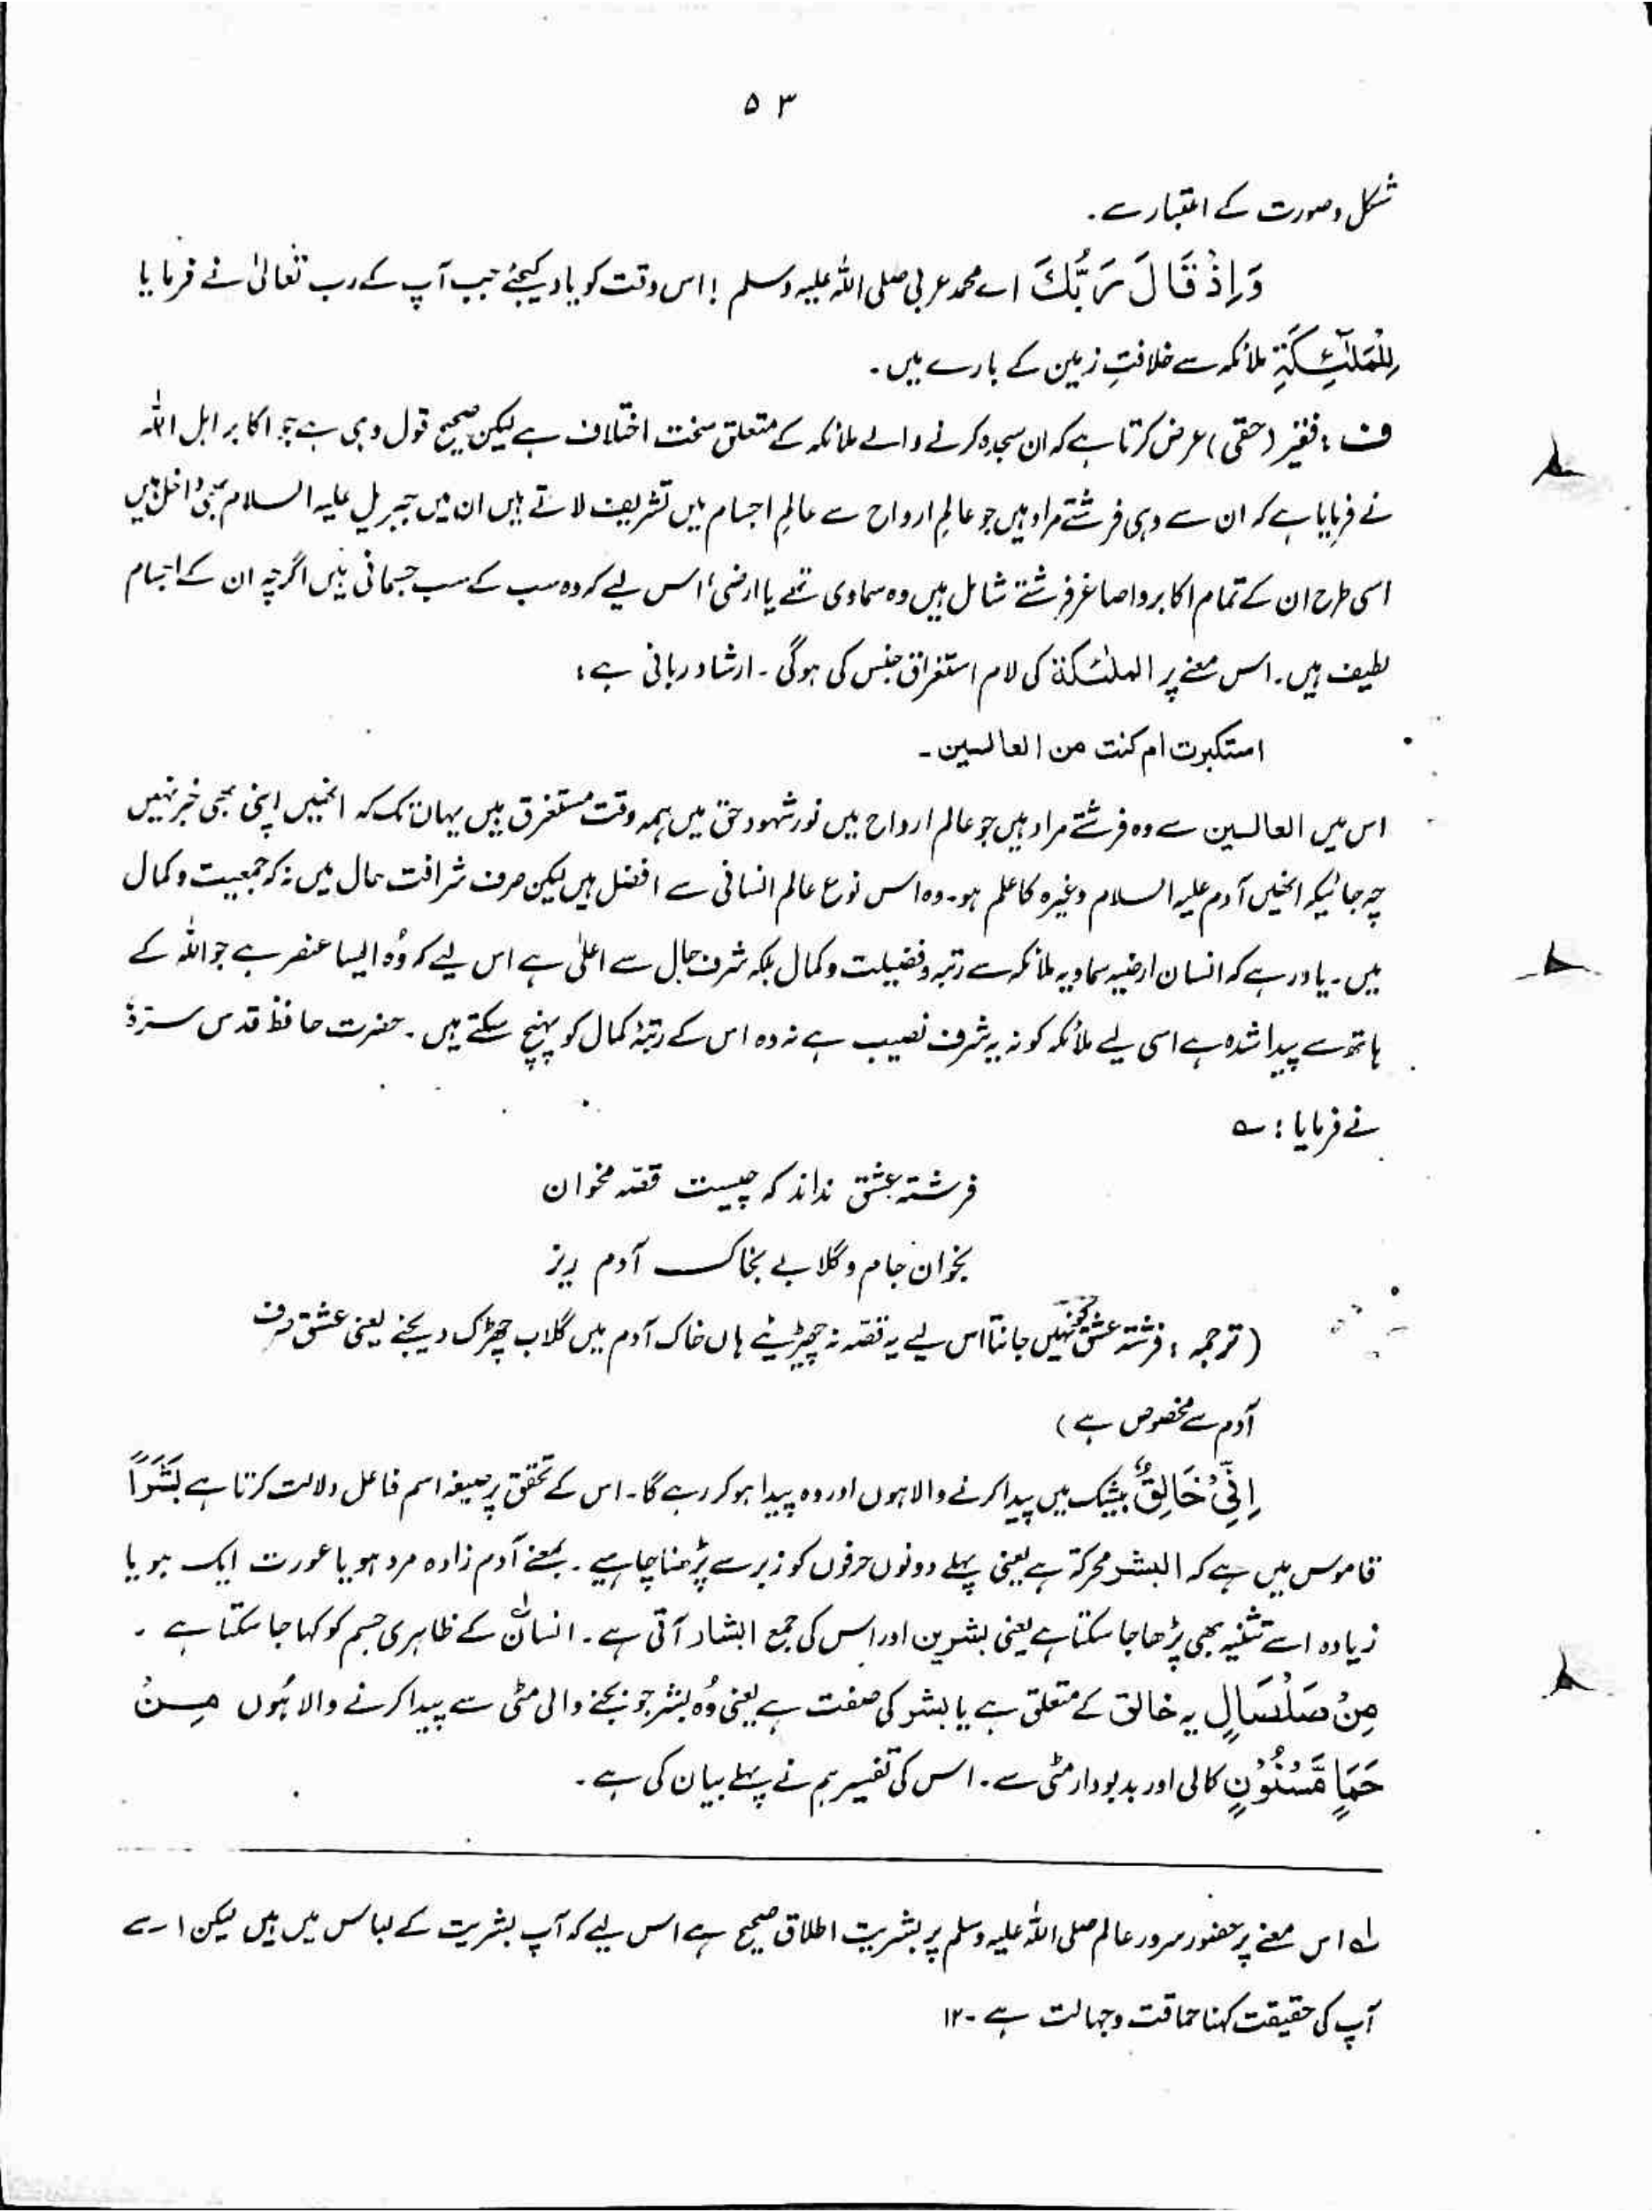 ۵۳
شکل وصورت کے اعتبار سے۔
وَاِذْ قَالَ رَبُّكَ اے محمد عربی صلی اللہ علیہ وسلم ! اس وقت کو یاد کیجئے جب آپ کے رب تعالیٰ نے فرمایا
لِلْمَلٰٓئِكَةِ ملائکہ سے خلافتِ زمین کے بارے میں۔
ف : فقیر (حقی) عرض کرتا ہے کہ ان سجدہ کرنے والے ملائکہ کے متعلق سخت اختلاف ہے لیکن صحیح قول وہی ہے جو اکابر اہل اللہ
نے فرمایا ہے کہ ان سے وہی فرشتے مراد ہیں جو عالمِ ارواح سے عالمِ اجسام میں تشریف لاتے ہیں ان میں جبریل علیہ السلام بھی داخل ہیں
اسی طرح ان کے تمام اکابر واصاغر فرشتے شامل ہیں وہ سماوی تھے یا ارضی، اس لیے کہ وہ سب کے سب جسمانی ہیں اگرچہ ان کے اجسام
لطیف ہیں۔ اس معنے پر الملٰئکة کی لام استغراق جنس کی ہوگی۔ ارشاد ربانی ہے :
استکبرت ام کنت من العالین۔
اس میں العالین سے وہ فرشتے مراد ہیں جو عالم ارواح میں نور شہود حق میں ہمہ وقت مستغرق ہیں یہاں تک کہ انھیں اپنی بھی خبر نہیں
چہ جائیکہ انھیں آدم علیہ السلام وغیرہ کا علم ہو۔ وہ اس نوع عالم انسانی سے افضل ہیں لیکن صرف شرافت حال میں نہ کہ جمعیت وکمال
میں۔ یاد رہے کہ انسان ارضیہ سماویہ ملائکہ سے رتبہ وفضیلت وکمال بلکہ شرف حال سے اعلیٰ ہے اس لیے کہ وُہ ایسا عنصر ہے جو اللہ کے
ہاتھ سے پیدا شدہ ہے اسی لیے ملائکہ کو نہ یہ شرف نصیب ہے نہ وہ اس کے رتبۂ کمال کو پہنچ سکتے ہیں۔ حضرت حافظ قدس سرّہٗ
نے فرمایا : ؎
فرشتہ عشق نداند کہ چیست قصّہ مخوان
بخوان جام و گلابے بخاک آدم ریز
(ترجمہ : فرشتہ عشق کو نہیں جانتا اس لیے یہ قصّہ نہ چھیڑئیے ہاں خاک آدم میں گلاب چھڑک دیجئے یعنی عشق صرف
آدم سے مخصوص ہے)
اِنِّیْ خَالِقٌ بیشک میں پیدا کرنے والا ہوں اور وہ پیدا ہو کر رہے گا۔ اس کے تحقق پر صیغہ اسم فاعل دلالت کرتا ہے بَشَرًا
قاموس میں ہے کہ البشر محرکۃ ہے یعنی پہلے دونوں حرفوں کو زبر سے پڑھنا چاہیے۔ بمعنے آدم زادہ مرد ہو یا عورت ایک ہو یا
زیادہ اسے تثنیہ بھی پڑھا جا سکتا ہے یعنی بشرین اور اس کی جمع ابشار آتی ہے۔ انسان لے کے ظاہری جسم کو کہا جا سکتا ہے ۔
مِنْ صَلْصَالٍ یہ خالق کے متعلق ہے یا بشر کی صفت ہے یعنی وُہ بشر جو بجنے والی مٹی سے پیدا کرنے والا ہُوں مِنْ
حَمَاٍ مَّسْنُوْنٍ کالی اور بدبودار مٹی سے۔ اس کی تفسیر ہم نے پہلے بیان کی ہے۔
لے اس معنے پر حضور سرور عالم صلی اللہ علیہ وسلم پر بشریت اطلاق صحیح ہے اس لیے کہ آپ بشریت کے لباس میں ہیں لیکن اسے
آپ کی حقیقت کہنا حماقت وجہالت ہے ۔۱۲